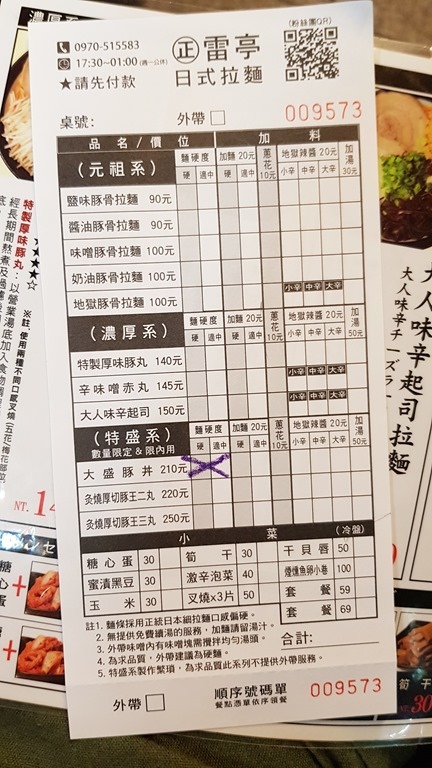 (粉絲團QR)
0970-515583
17:30~01:00 (週一公休)
★請先付款
正 雷亭
日式拉麵
桌號:
外帶
009573
品名/價位
加料
(元祖系)
麵硬度
硬 適中
加麵 20元
硬 適中
蔥花10元
地獄辣醬 20元
小辛 中辛 大辛
加湯30元
鹽味豚骨拉麵 90元
醬油豚骨拉麵 90元
味噌豚骨拉麵 100元
奶油豚骨拉麵 100元
地獄豚骨拉麵 100元
小辛 中辛 大辛
(濃厚系)
麵硬度
硬 適中
加麵 20元
硬 適中
蔥花10元
地獄辣醬 20元
小辛 中辛 大辛
加湯50元
特製厚味豚丸 140元
辛味噌赤丸 145元
小辛 中辛 大辛
大人味辛起司 150元
小辛 中辛 大辛
(特盛系)
數量限定&限內用
麵硬度
硬 適中
加麵 20元
硬 適中
蔥花10元
地獄辣醬 20元
小辛 中辛 大辛
加湯50元
大盛豚丼 210元
炙燒厚切豚王二丸 220元
炙燒厚切豚王三丸 250元
小菜 (冷盤)
糖心蛋 30
筍干 30
干貝唇 50
蜜漬黑豆 30
激辛泡菜 40
煙燻魚卵小卷 100
玉米 30
叉燒x3片 50
套餐 59
套餐 69
註1. 麵條採用正統日本細拉麵口感偏硬。
2. 無提供免費續湯的服務,加麵請留湯汁。
3. 外帶味噌內有味噌塊需攪拌均勻湯頭。
4. 為求品質,外帶建議為硬麵。
5. 特盛系製作繁瑣,為求品質此系列不提供外帶服務。
合計:
外帶
順序號碼單
餐點憑單依序領餐
009573
特製厚味豚丸
★★★☆
※註.使用兩種不同口感叉燒
經長期間熬煮及過濾後
大人味辛起司拉麵
大人味辛チーズラー
NT. 30